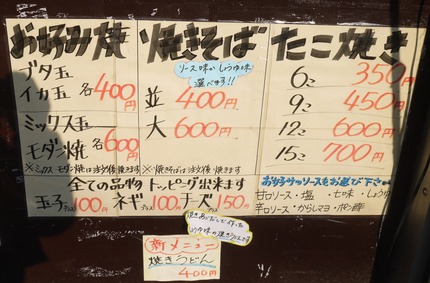 お好み焼
ブタ玉
イカ玉 各400円
ミックス玉
モダン焼 各600円
※ミックス・モダン焼は注文後焼きます
焼きそば
ソース味か しょうゆ味
選べます!!
並 400円
大 600円
※焼きそばは注文後焼きます
たこ焼き
6コ 350円
9コ 450円
12コ 600円
15コ 700円
全ての品物 トッピング出来ます
玉子プラス100円 ネギプラス100円 チーズプラス150円
お好みでソースもお選び下さい
甘口ソース・塩・七味・しょうゆ
辛口ソース・からしマヨ・ポン酢
新メニュー
焼きうどん
400円